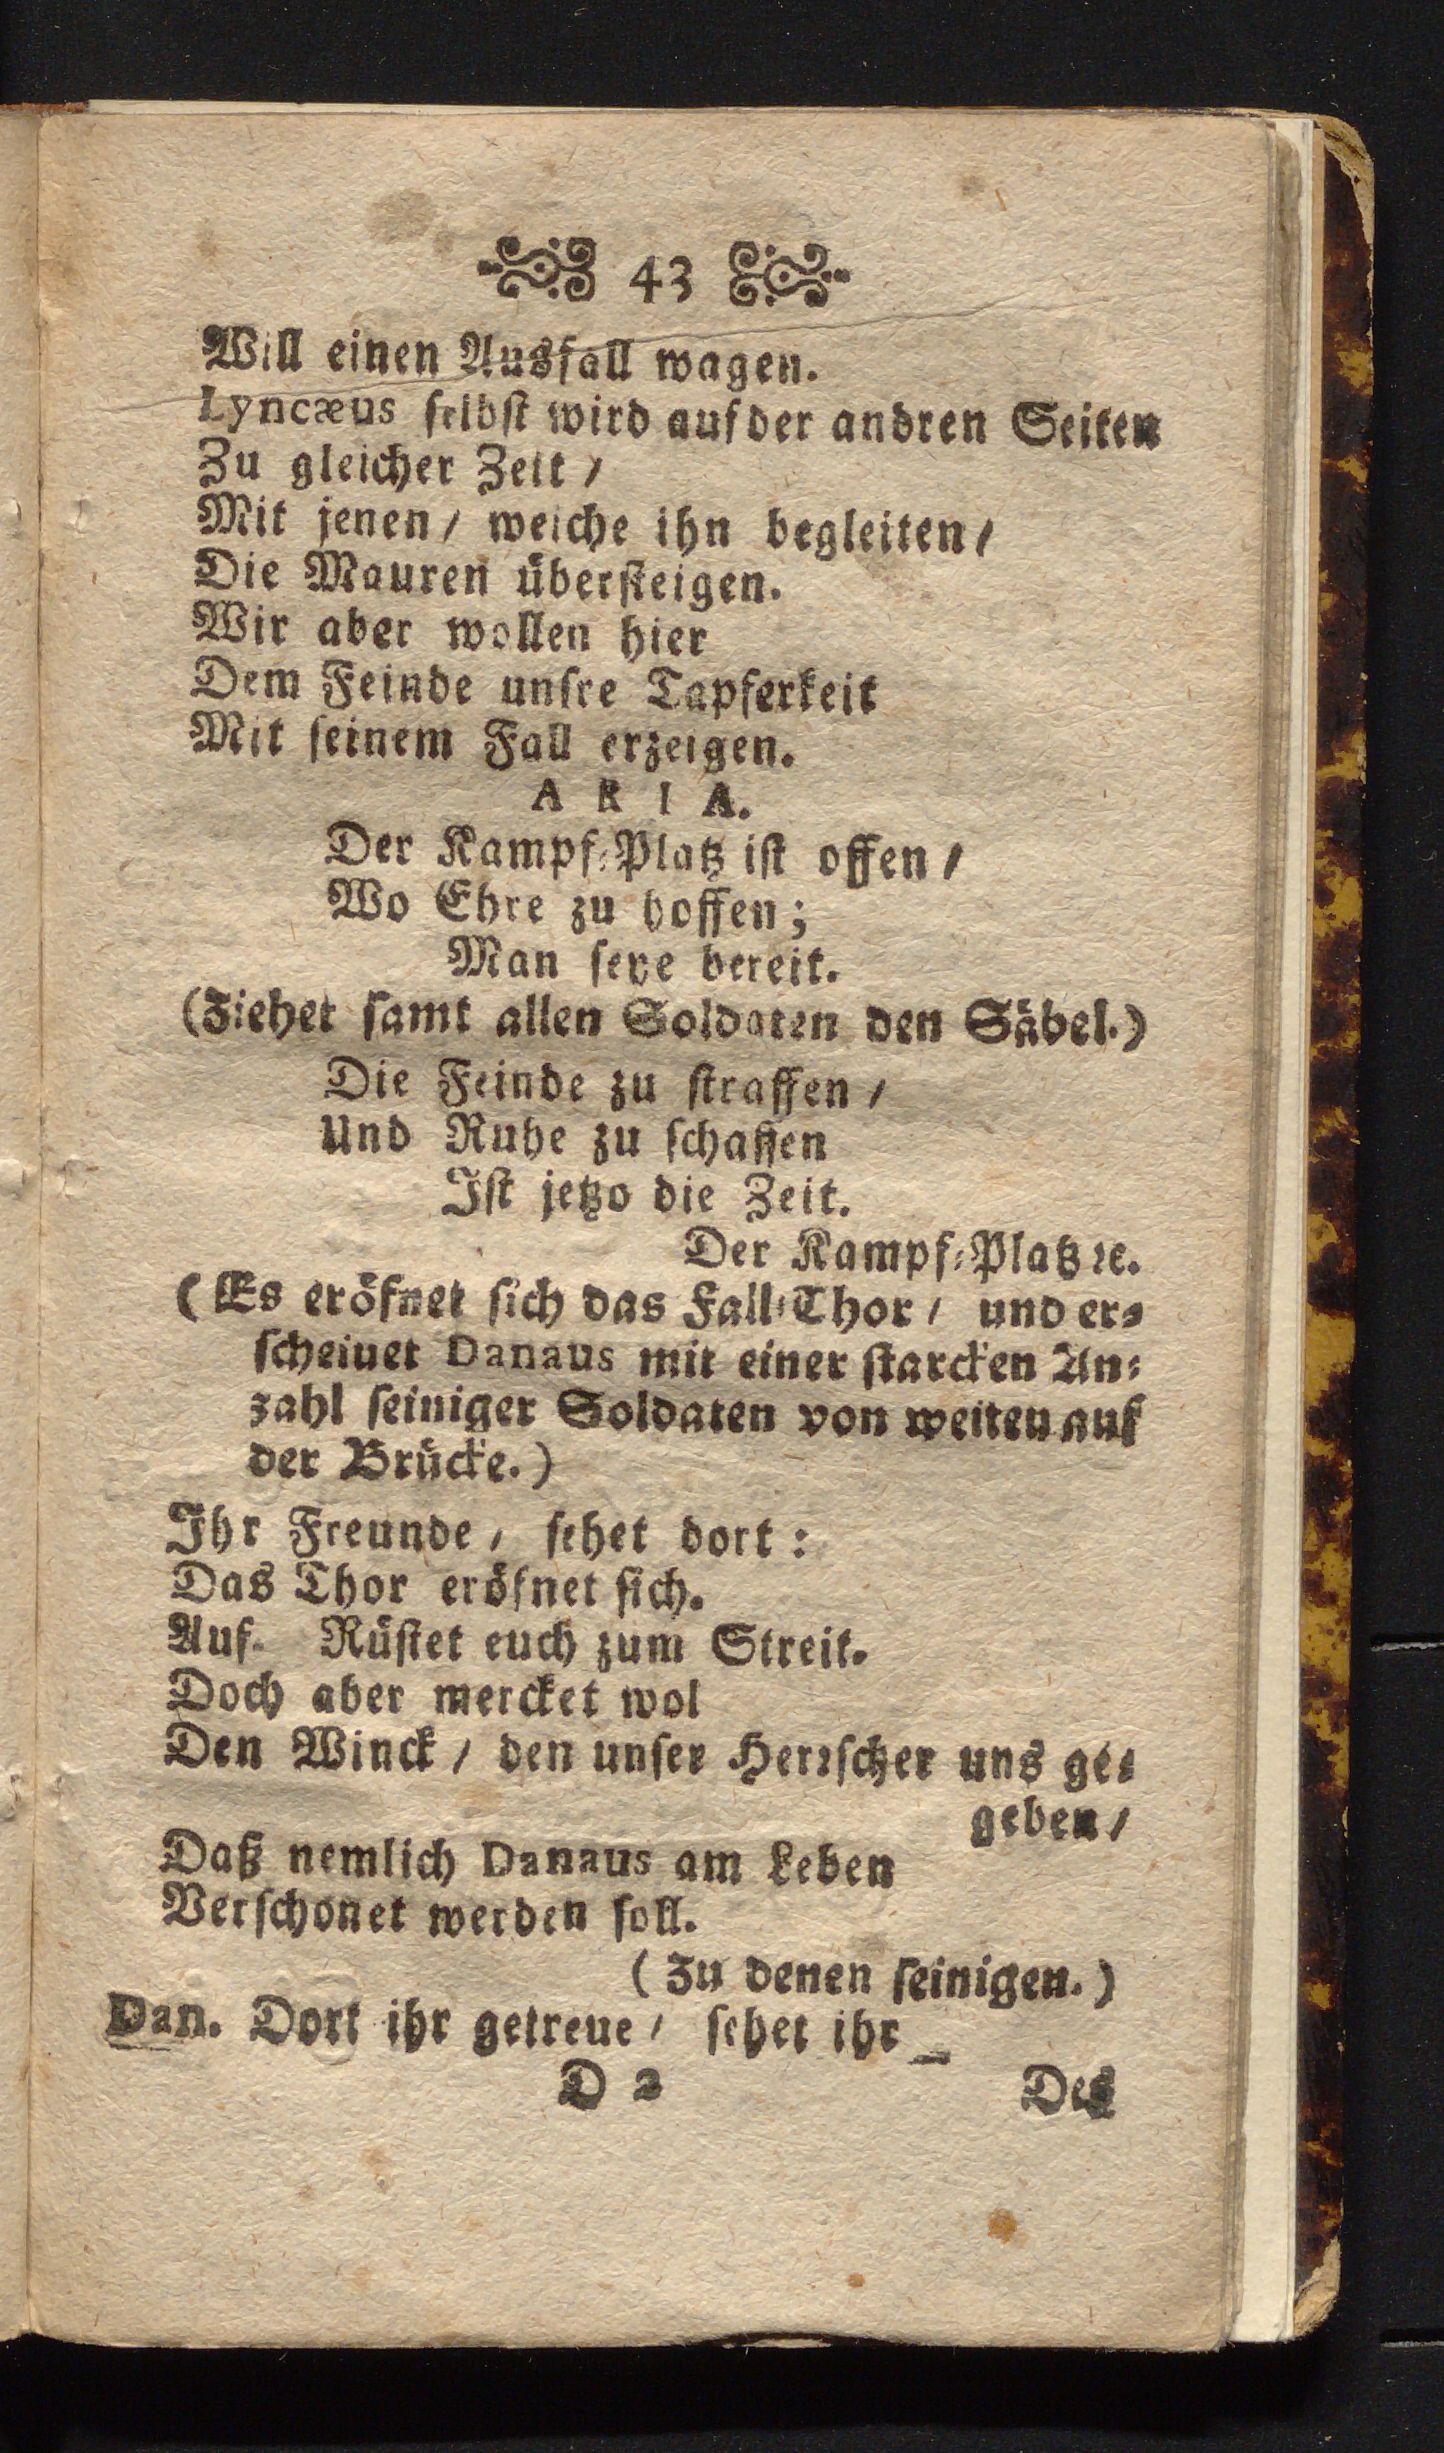 43
Will einen Ausfall wagen.
Lyncæus selbst wird auf der andren Seiten
Zu gleicher Zeit /
Mit jenen / welche ihn begleiten /
Die Mauren übersteigen.
Wir aber wollen hier
Dem Feinde unsre Tapferkeit
Mit seinem Fall erzeigen.
A R I A.
Der Kampf-Platz ist offen /
Wo Ehre zu hoffen;
Man seye bereit.
(Ziehet samt allen Soldaten den Säbel.)
Die Feinde zu straffen /
Und Ruhe zu schaffen
Ist jetzo die Zeit.
Der Kampf-Platz ꝛc.
(Es eröfnet sich das Fall-Thor / und er-
scheinet Danaus mit einer starcken An-
zahl seiniger Soldaten von weiten auf
der Brücke.)
Ihr Freunde / sehet dort:
Das Thor eröfnet sich.
Auf. Rüstet euch zum Streit.
Doch aber mercket wol
Den Winck / den unser Herrscher uns ge-
geben /
Daß nemlich Danaus am Leben
Verschonet werden soll.
(Zu denen seinigen.)
Dan. Dort ihr getreue / sehet ihr _
D 2 Des